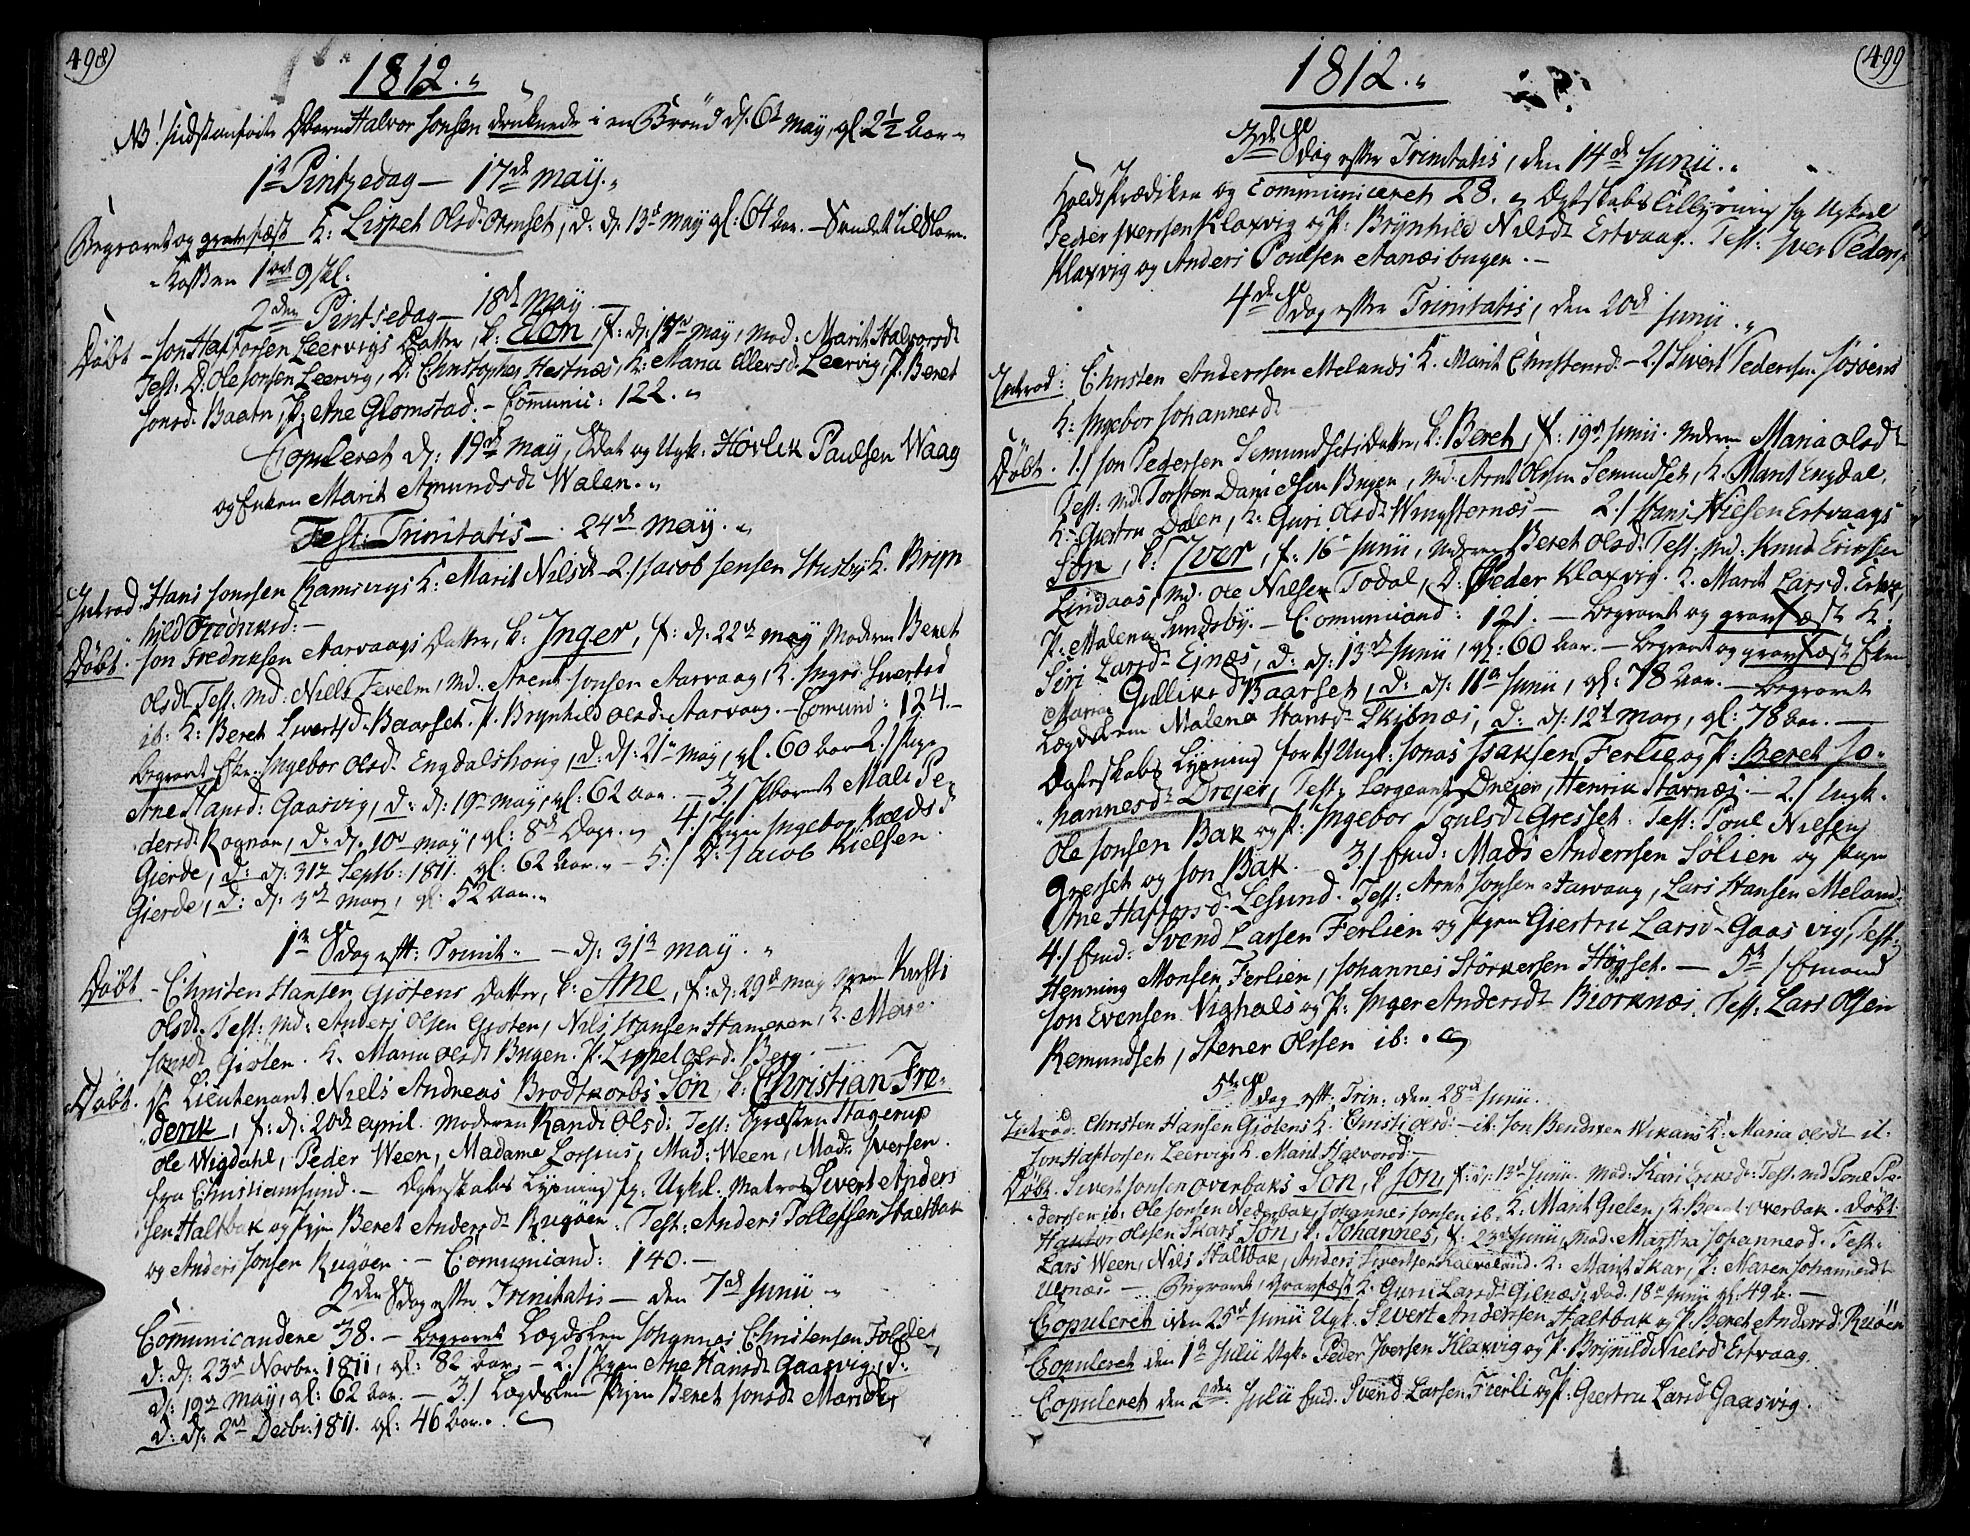 498)
1812.
NB! sidstanførte Dbarn Halvor Jonsen druknede i en Brønd d: 6t May, gl 2 1/2 Aar
1ste Pintzedag — 17de May.
Begravet og gravfæst K: Lispet Olsd: Ormset, d: d: 13d May gl: 64 Aar. — Sendet til Skole-
Kassen 1 ort 9 skl:
2den Pintsedag — 18d May.
Døbt — Jon Haftorsen Leervigs Datter, k: Elon, f: d: May, Mod: Marit Halvorsdt
Test: D: Ole Jonsen Leervig, D: Christopher Hestnæs, K: Maria Ellersd: Leervig, P. Beret
Jonsd: Baatn, P: Ane Glomstad. — Communic: 122.
Copuleret d: 19d May, Sdat og Ugk. Hovlek Paulsen Waag
og Enken Marit Amundsdt Walen.
Fest: Trinitatis — 24d May.
Introd. Hans Jonsen Ramsvigs K: Marit Nilsdt — 2./ Jacob Jensen Husbys K. Bryn
hild Fredriksd: —
Døbt. Jon Fredriksen Aarvaags Datter, k: Inger, f: d: 22d May Moderen Beret
Olsdt Test: Md: Niels Fevelm, Md: Arent Jonsen Aarvaag, K. Ingri Sivertsd
ib: K: Beret Sivertsd. Baarset. P. Brynhild Olsd. Aarvaag. — Comund: 124. —
Begravet Eke: Ingebor Olsd. Engdalshoug, d: d: 21 May, gl. 60 Aar 2./ Pige
Ane Hansd: Gaasvig, d: d: 19 May, gl: 62 Aar. — 3./ Pbarnet Mali Pe-
dersd: Rognan, d: d: 10 May, gl: 8 Dage. 4./ Pigen Ingebor Kieldsd
Gierde, d: d: 31 Septb: 1811. gl: 62 Aar. — 5./ D: Jacob Kielsen
Gierde, d: d: 3d Marz, gl: 52 Aar.
1ste Sdag eft: Trinit. — d: 31 May.
Døbt — Christen Hansen Giøtens Datter, k: Ane, f: d: 29d May Moderen Kirsti
Olsdt. Test: Md: Anders Olsen Gioten, Nils Hansen Hameren, K. Mare
Jonsdt Giølen. K. Maria Olsdt Bugen. P. Lippel Olsd: Berg. —
Døbt. Sr Lieutenant Niels Andreas Brodtkorbs Søn, k: Christian Fre-
derik, f: d: 20d April. Moderen Randi Olsd: Test: Præsten Hagerup
Ole Wigdahl, Peder Ween, Madame Lossius, Mad: Ween, Mad: Iversen
fra Christiansund. — Ægteskabs Lysning for Ugkl. Matros Sivert Anders
sen Haltbak og Pigen Beret Andersdt Rugøen. Test: Anders Tollefsen Haltbak
og Anders Jonsen Rugøen. — Comuniand: 140. —
2den Sdag efter Trinitatis — den 7de Junii
Communicandene 38. — Begravet Lægdslem Johannes Christensen Folde
d: d: 23d Novbr. 1811, gl: 82 Aar, — 2./ Pigen Ane Hansdt Gaasvig, d:
d: 19 May, gl: 62 Aar. — 3./ Lægdslem Pigen Beret Jonsdt
d: d: 2d Decbr. 1811. gl: 46 Aar.
(499
1812.
3de Sdag efter Trinitatis, den 14de Junii.
Holdt Prædiken og communiceret 28. Ægteskabs Tillysning for Ugkarl
Peder Iversen Klaxvig og P: Brynhild Nilsdt Ertvaag. Test: Iver Peders
Klaxvig og Anders Poulsen Aanæsbugen. —
4de Sdag efter Trinitatis, den 20d Junii.
Introd: Christen Anderssen Melands K. Marit Christensd. — 2./ Sivert Pedersen
K: Ingebor Johannesdt
Døbt. 1./ Jon Pedersen Semundsets Datter, k: Beret, f: 19d Junii. Moderen Maria Olsdt
Test: Md: Torsten Danielsen Bugen, Md: Arnt Olsen Semundset, K. Marit Engdal,
K: Giertru Dalen, K: Guri Olsdt — 2./ Hans Nielsen Ertvaags
Søn, k: Iver, f: 16 Junii, Moderen Beret Olsd: Test: Md: Knud Eriksen
Lindaas, Md. Ole Nielsen Todal, D: Peder Klaxvig. K. Marit Larsd.
P: Malena Sundsby. — Comuniand: 121. — Begravet og gravfæst K:
Siri Larsdt Ejnæs, d: d: 13d Junii, gl: 60 Aar. — Begravet og gravfæst Enken
Maria Gulliksd Baarset, d: d: 11 Junii, gl: 78 Aar. — Begravet
Lægdslem Malena Hansdt Skibnæs, d: d: 12t Marz, gl: 78 Aar. —
Ægteskabs Lysning for 1/ Ungk: Jonas Isaksen Ferlie og P: Beret Jo-
hannesdt Drejer, Test: Sergeant Drejer, Henrik Starnæs. — 2./ Ungk.
Ole Jonsen Bak og P: Ingebor Poulsdt Gresset. Test: Poul Nilsen
Gresset og Jon Bak. — 3./ Emd: Mads Anderssen Sølien og Pigen
Ane Haftorsd. Lesund. Test: Arnt Jonsen Aarvaag, Lars Hansen Meland
4./ Emd: Svend Larsen Ferlien og Pigen Giertru Larsd Gaasvig, Test:
Henning Monsen Ferlien, Johannes Størkersen Høgset. — 5te / Emand
Jon Evensen Vighals og P: Inger Andersdt Biorknæs. Test: Lars Olsen
Remundset, Stener Olssen ib:
5te Sdag eft. Trin: den 28d Junii.
Introd: Christen Hansen Giølens K: Christi Olsd: — ib: Jon Bendixen Wikans K: Maria Olsdt — ib:
Jon Haftorsen Leervigs K. Marit Halvorsd: —
Døbt. Sivert Jonsen Overbaks Søn, k: Jon, f: d: 13d Junii. Mod: Kari Eriksd: Test: Md Poul Pe-
derssen ib: Ole Jonsen Nederbak, Johannes Jonsen ib. K: Marit Gielen, K: Beret Overbak. Døbt
Olssen Skars Søn, k: Johannes, f: 23d Junii, Mod: Martha Johannesd. Test:
Lars Ween, Nils Haltbak, Anders Sivertsen. K: Marit Skar, P: Maren Johannesdt
Uernæs. — Begravet, Gravfæst K: Guru Larsdt Gilnæs, død 18 Junii gl: 49 A. —
Copuleret den 25d Junii Ugk. Sivert Anderssen Haltbak og P. Beret Andersd: Ruøen
Copuleret den 1ste Julii Ugk. Peder Iversen Klaxvig og P. Brynild Nielsdt Ertvaag.
Copuleret den 2den Julii Emd: Svend Larsen Fierli og P: Giertru Larsd Gaasvig.